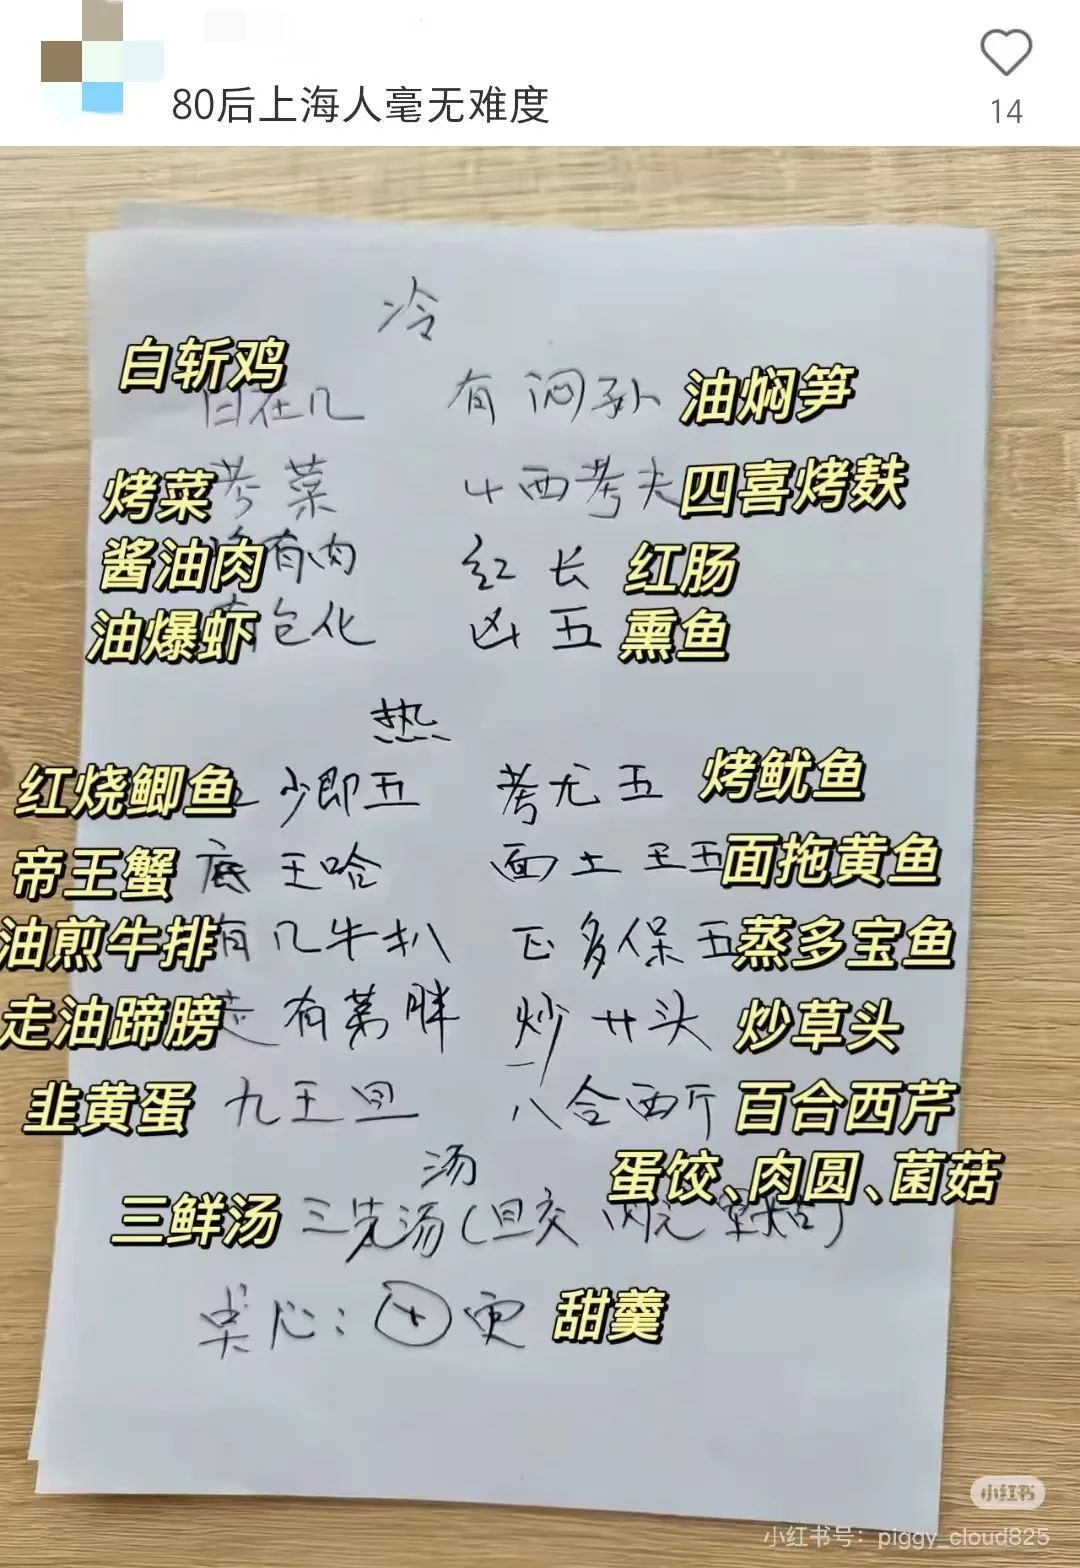 80后上海人毫无难度
14
冷
白斩鸡
白在几 有闷孙 油焖笋
烤菜 考菜 4西考夫 四喜烤麸
酱油肉 有肉 红长 红肠
油爆虾 包化 凶五 熏鱼
热
红烧鲫鱼 少即五 考尤五 烤鱿鱼
帝王蟹 底王哈 面土王五 面拖黄鱼
油煎牛排 有几牛扒 正多保五 蒸多宝鱼
走油蹄膀 走有弟胖 炒廿头 炒草头
韭黄蛋 九王旦 八合西斤 百合西芹
汤
蛋饺、肉圆、菌菇
三鲜汤 三先汤(旦交 肉元
点心: 更 甜羹
小红书
小红书号: piggy_cloud825